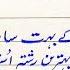 کے بہت سا
بہترین رشتہ اُس